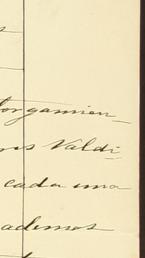 s
torgamien_
res Valdi_
cada una
ademos